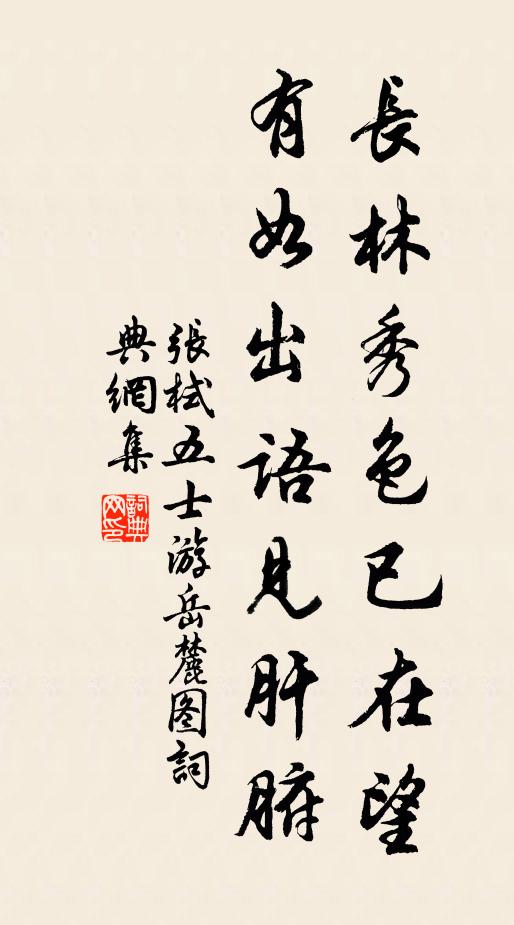 長林秀色已在望
有如出語見肝腑
張栻五士游岳麓图詞
典網集
詞典
网印